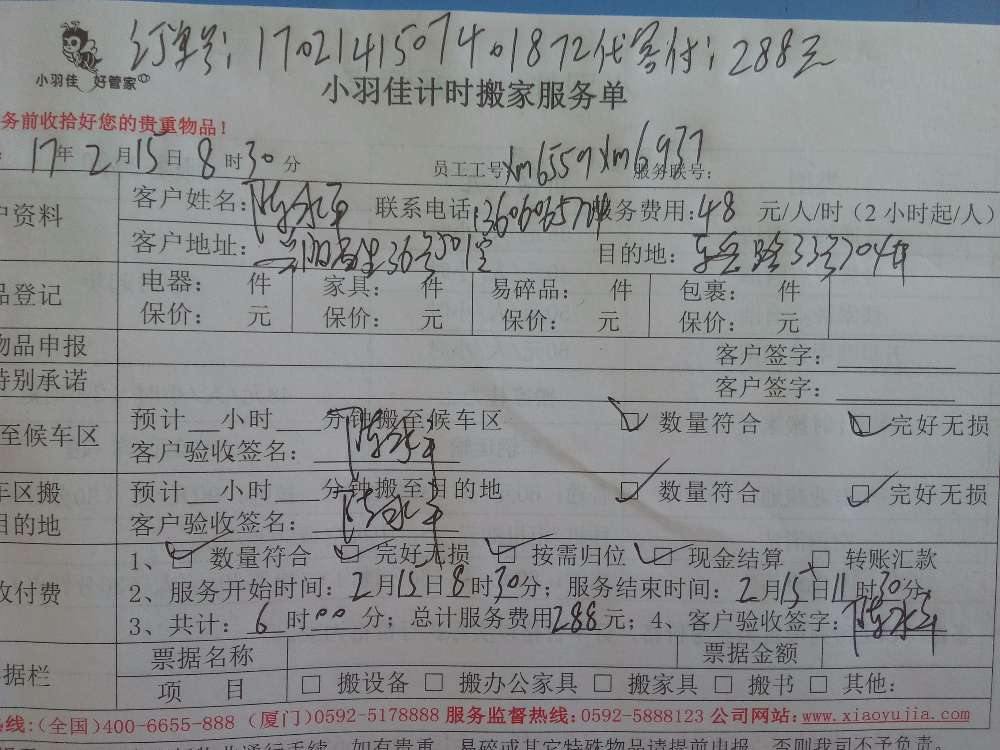 订单号:170214150740 1872代客付:288元
小羽佳 好管家
小羽佳计时搬家服务单
务前收拾好您的贵重物品!
17年2月15日8时30分 员工工号xm6559 xm6937 服务联号:
户资料 客户姓名: 联系电话: 服务费用:48元/人/时(2小时起/人)
客户地址: 36号501室 目的地: 东岳路33号704
品登记 电器: 件 家具: 件 易碎品: 件 包裹: 件
保价: 元 保价: 元 保价: 元 保价: 元
物品申报 客户签字:
特别承诺 客户签字:
至候车区 预计 小时 分钟搬至候车区 □ 数量符合 □ 完好无损
客户验收签名:
车区搬 预计 小时 分钟搬至目的地 □ 数量符合 □ 完好无损
目的地 客户验收签名:
1、□ 数量符合 □ 完好无损 □ 按需归位 □ 现金结算 □ 转账汇款
收付费 2、服务开始时间:2月15日8时30分;服务结束时间:2月15日11时30分
3、共计:6时00分;总计服务费用288元;4、客户验收签字:
票据名称 票据金额
据栏 项 目 □ 搬设备 □ 搬办公家具 □ 搬家具 □ 搬书 □ 其他:
热线:(全国)400-6655-888 (厦门)0592-5178888 服务监督热线:0592-5888123 公司网站:www.xiaoyujia.com